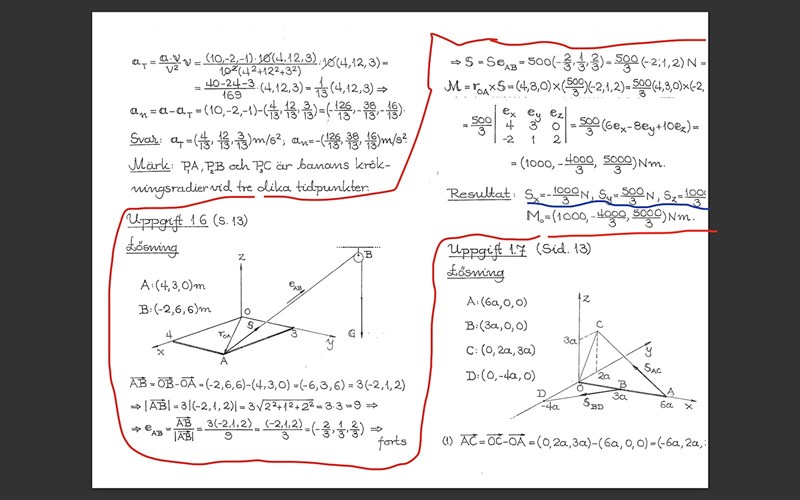 a_T = (a·v/v²) v = ((10,-2,-1)·10(4,12,3) / 10²(4²+12²+3²)) · 10(4,12,3) =
= ((40-24-3)/169) · (4,12,3) = 1/13 (4,12,3) ⇒
a_n = a - a_T = (10,-2,-1) - (4/13, 12/13, 3/13) = (126/13, -38/13, -16/13).
Svar: a_T = (4/13, 12/13, 3/13) m/s², a_n = -(126/13, 38/13, 16/13) m/s²
Märk: P₁A, P₂B och P₃C är banans krök-
ningsradier vid tre olika tidpunkter.
Uppgift 1.6 (S. 13)
Lösning
A: (4,3,0) m
B: (-2,6,6) m
z
B
e_AB
O
4
r_OA
S
3
G
x
A
y
AB = OB - OA = (-2,6,6) - (4,3,0) = (-6,3,6) = 3(-2,1,2)
⇒ |AB| = 3|(-2,1,2)| = 3√(2²+1²+2²) = 3·3 = 9 ⇒
⇒ e_AB = AB/|AB| = 3(-2,1,2)/9 = (-2,1,2)/3 = (-2/3, 1/3, 2/3) ⇒
forts
⇒ S = S e_AB = 500(-2/3, 1/3, 2/3) = 500/3 (-2,1,2) N =
M = r_OA × S = (4,3,0) × (500/3)(-2,1,2) = 500/3 (4,3,0) × (-2,
= 500/3 | e_x e_y e_z |
| 4 3 0 | = 500/3 (6e_x - 8e_y + 10e_z) =
| -2 1 2 |
= (1000, -4000/3, 5000/3) Nm.
Resultat: S_x = -1000/3 N, S_y = 500/3 N, S_z =
M₀ = (1000, -4000/3, 5000/3) Nm.
Uppgift 1.7 (Sid. 13)
Lösning
A: (6a,0,0)
B: (3a,0,0)
C: (0,2a,3a)
D: (0,-4a,0)
z
3a
C
y
2a
S_AC
D
O
B
A
-4a
S_BD
3a
6a
x
(1) AC = OC - OA = (0,2a,3a) - (6a,0,0) = (-6a,2a,